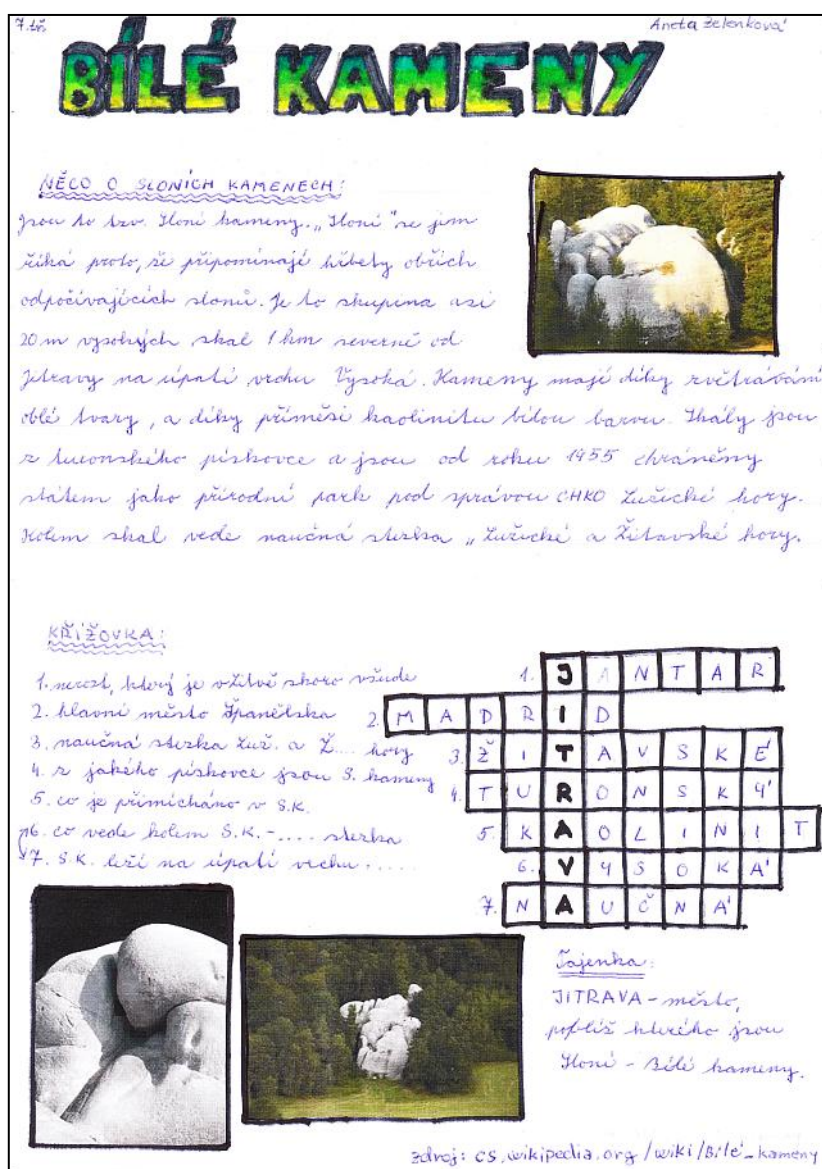 7. tř.
Aneta Zelenková
BÍLÉ KAMENY
NĚCO O SLONÍCH KAMENECH:
Jsou to tzv. Sloní kameny. „Sloní" se jim
říká proto, že připomínají hřbety obřích
odpočívajících slonů. Je to skupina asi
20 m vysokých skal 1 km severně od
Jitravy na úpatí vrchu Vysoká. Kameny mají díky zvětrávání
oblé tvary, a díky příměsi kaolinitu bílou barvu. Skály jsou
z turonského pískovce a jsou od roku 1955 chráněny
státem jako přírodní park pod správou CHKO Lužické hory.
Kolem skal vede naučná stezka „Lužické a Žitavské hory.
KŘÍŽOVKA:
1. nerost, který je v Litvě skoro všude
2. hlavní město Španělska
3. naučná stezka Luž. a Ž.... hory
4. z jakého pískovce jsou S. kameny
5. co je přimícháno v S.K.
6. co vede kolem S.K. - .... stezka
7. S.K. leží na úpatí vrchu .....
1. JANTAR
2. MADRID
3. ŽITAVSKÉ
4. TURONSKÝ
5. KAOLINIT
6. VYSOKÁ
7. NAUČNÁ
Tajenka:
JITRAVA - město,
poblíž kterého jsou
Sloní - Bílé kameny.
zdroj: cs.wikipedia.org/wiki/Bílé_kameny